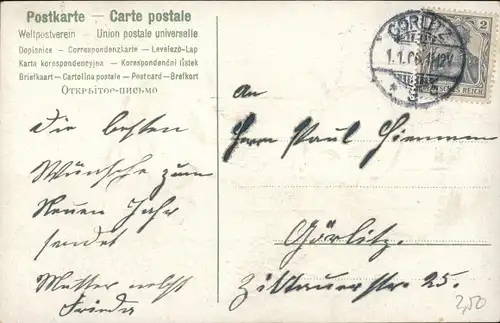 Postkarte — Carte postale
Weltpostverein — Union postale universelle
Dopisnice — Correspondenzkarte — Levelező-Lap
Karta korespondencyjna — Korespondenční lístek
Briefkaart — Cartolina postale — Postcard — Brefkort
Открытое-письмо
Die besten
Wünsche zum
Neuen Jahr
sendet
Mutter nebst
Frieda
GÖRLITZ
1.1.06.11-12V
2
DEUTSCHES REICH
An
Herrn Paul
Görlitz.
Zittauerstr. 25.
2,50